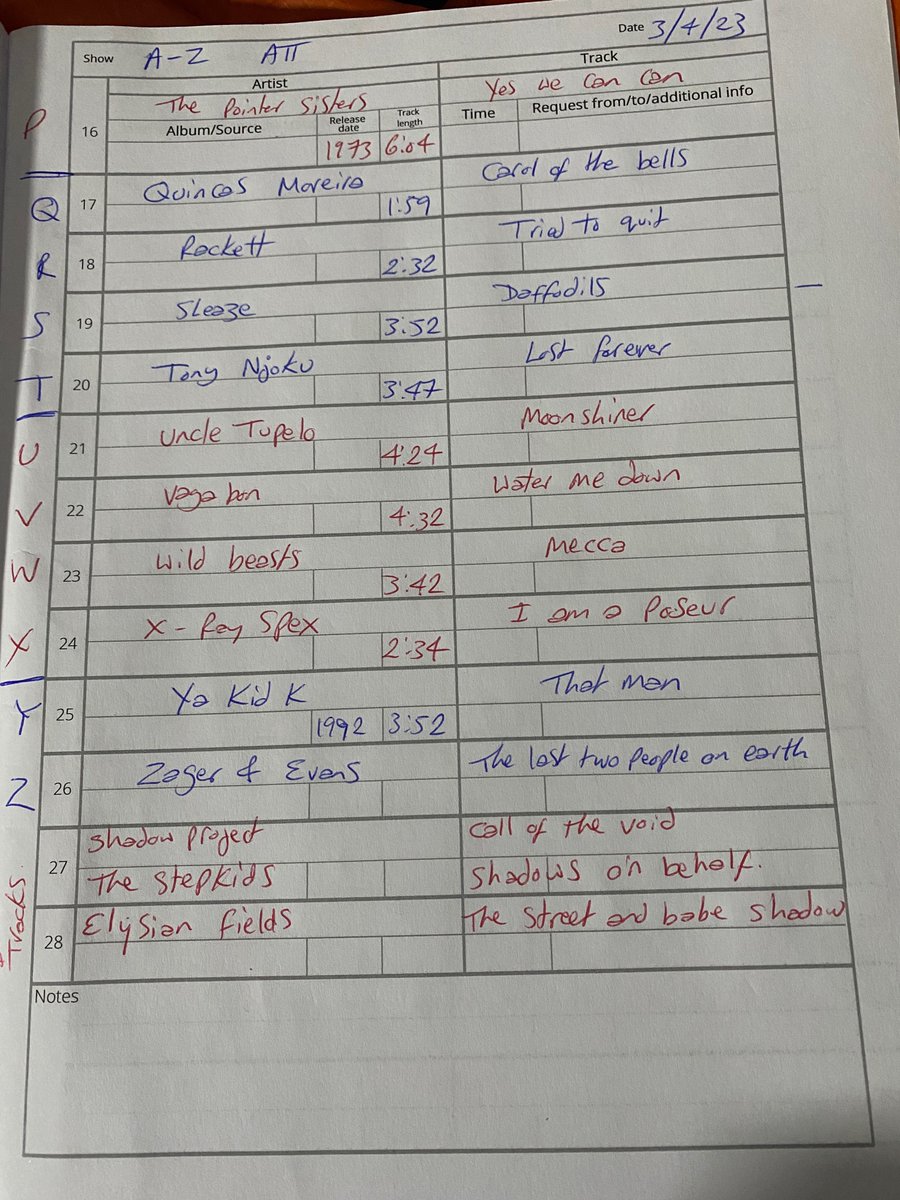 Show A-Z ATT Date 3/4/23
Artist Track
P 16 The Pointer Sisters Yes we can can
Album/Source Release date Track length Time Request from/to/additional info
1973 6:04
Q 17 Quincas Moreira Carol of the bells
1:59
R 18 Rackett Tried to quit
2:32
S 19 Sleaze Daffodils
3:52
T 20 Tony Njoku Lost forever
3:47
U 21 Uncle Tupelo Moonshiner
4:24
V 22 Vagabon Water me down
4:32
W 23 Wild beasts Mecca
3:42
X 24 X-Ray Spex I am a Poseur
2:34
Y 25 Ya Kid K That man
1992 3:52
Z 26 Zager & Evans The last two people on earth
27 Shadow project Call of the void
The Stepkids Shadows on behalf.
Tracks 28 Elysian fields The Street and babe shadow
Notes